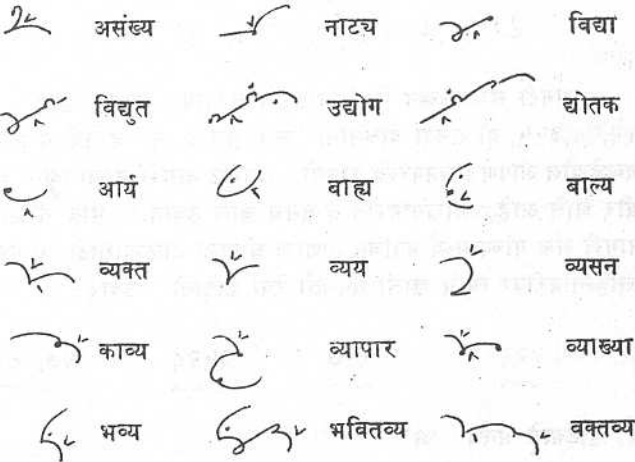 असंख्य नाट्य विद्या
विद्युत उद्योग द्योतक
आर्य बाह्य बाल्य
व्यक्त व्यय व्यसन
काव्य व्यापार व्याख्या
भव्य भवितव्य वक्तव्य